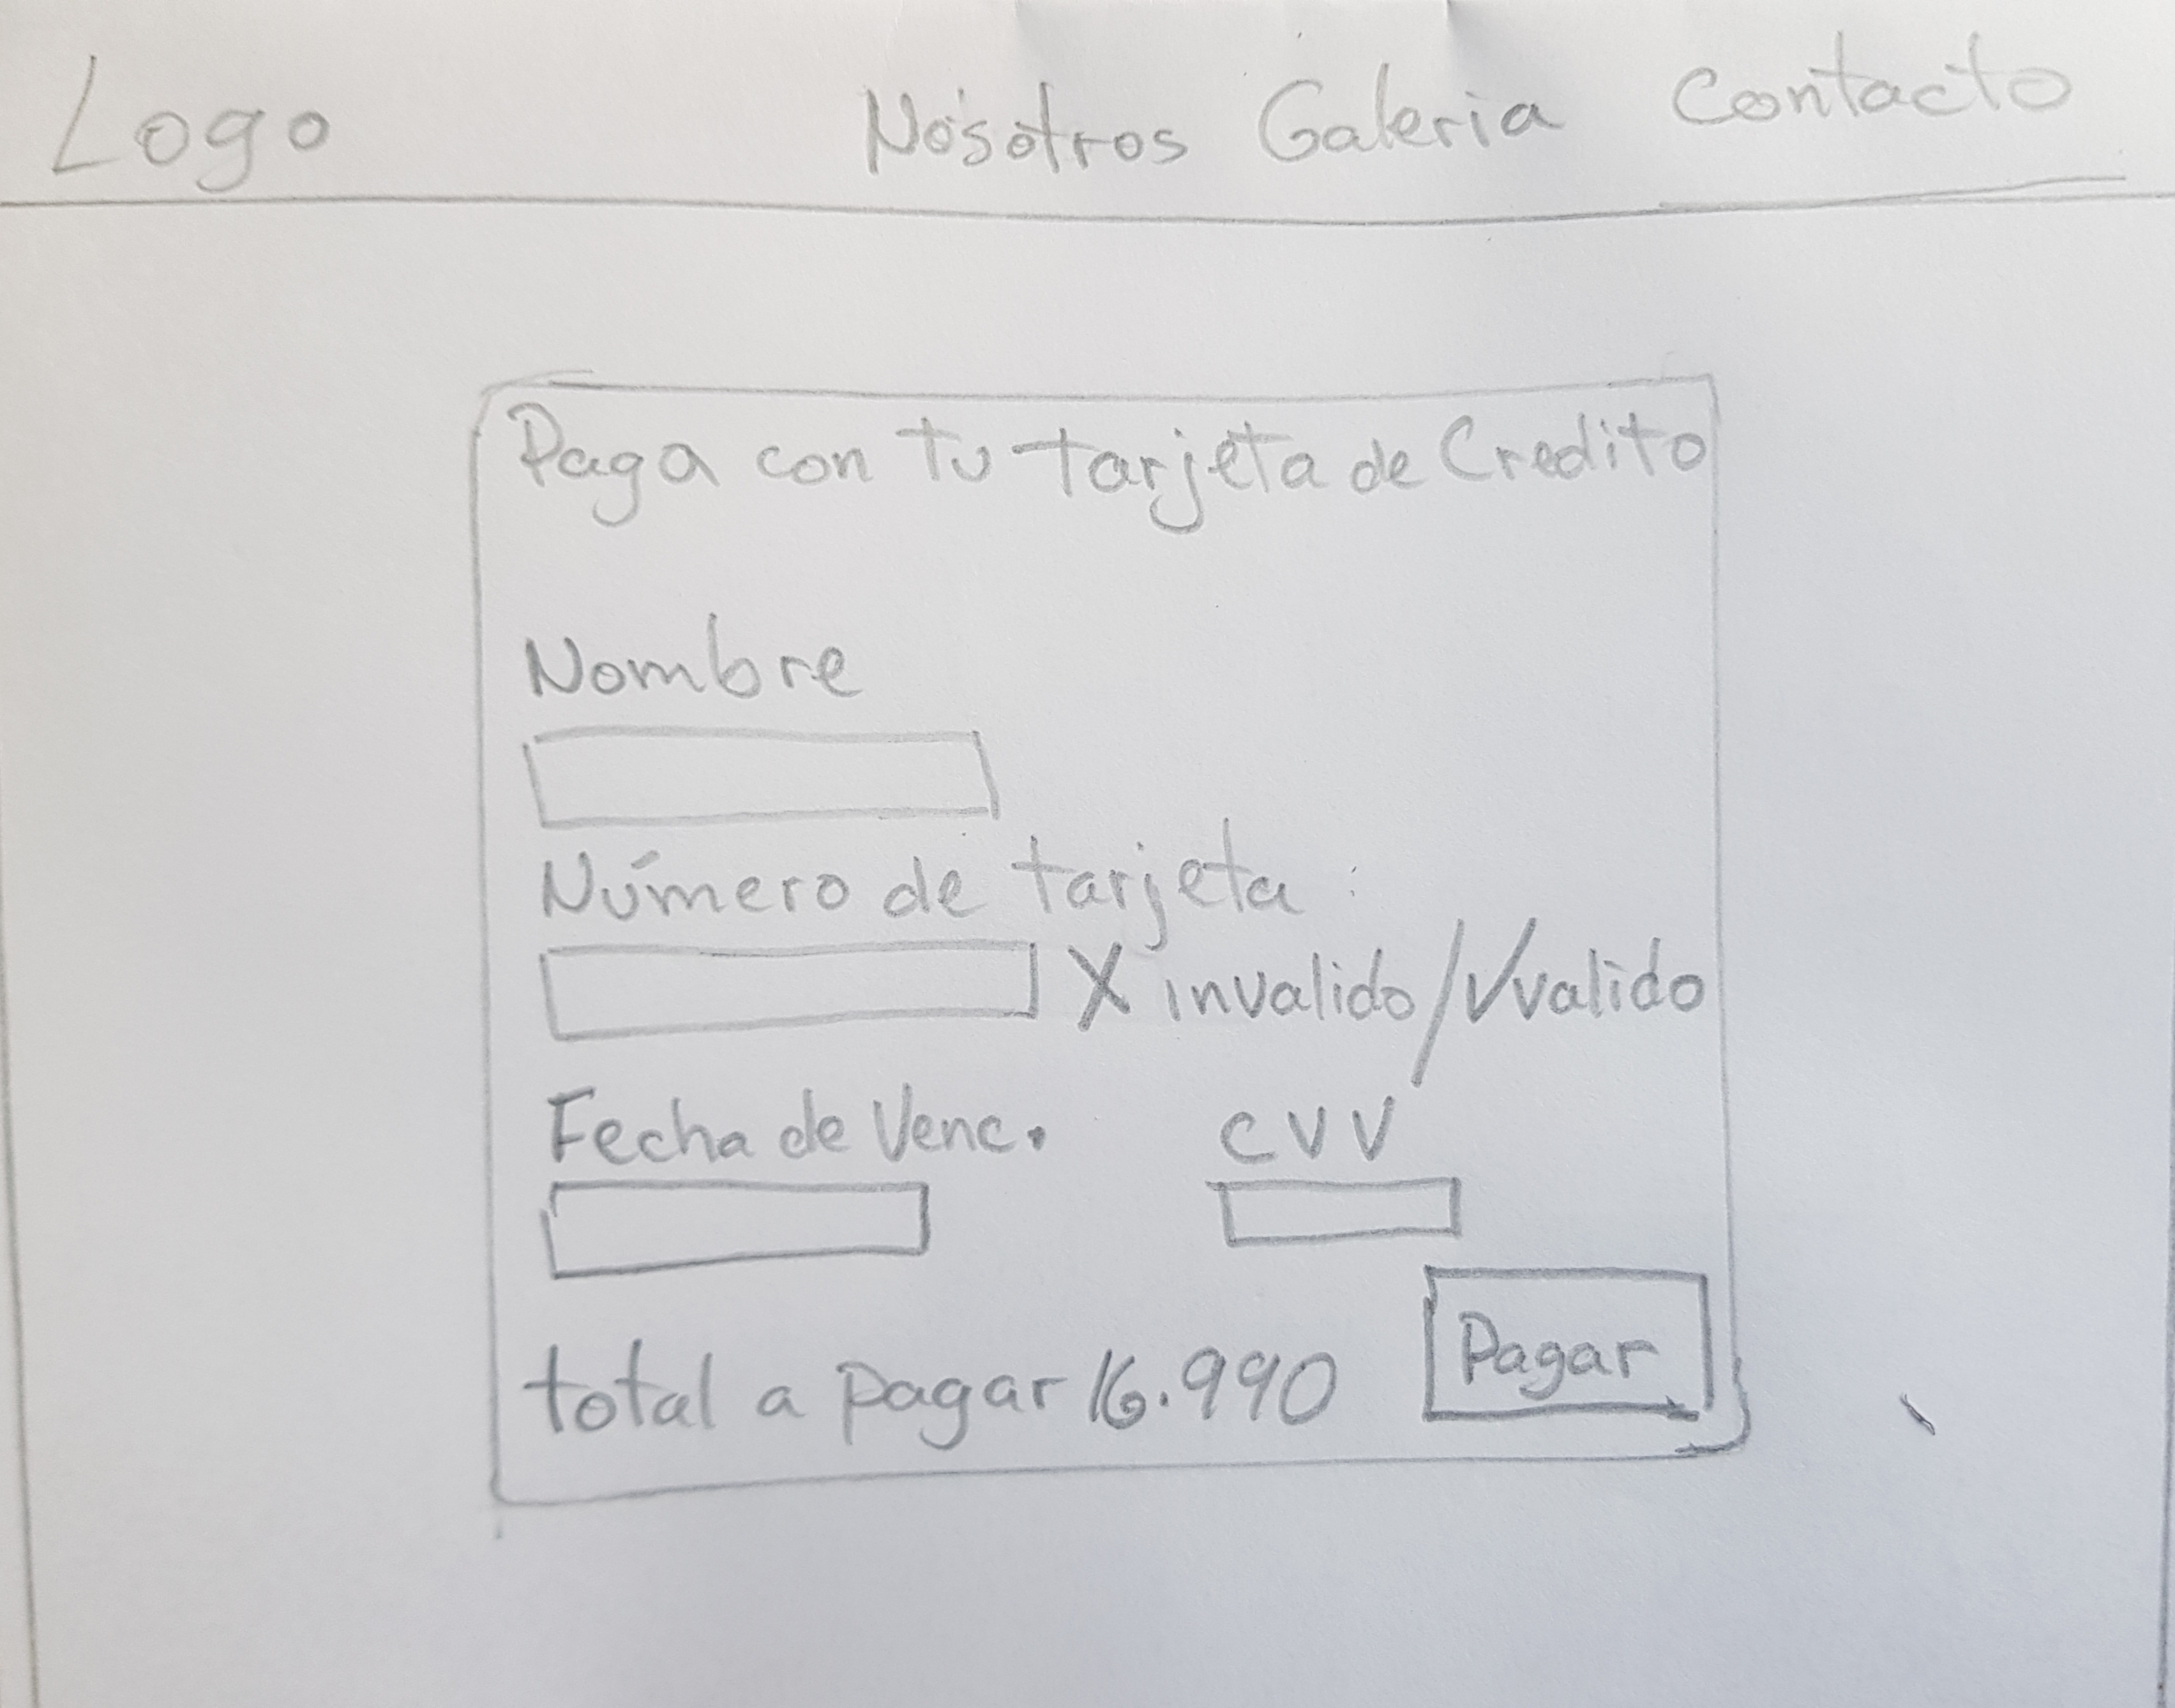 Logo Nosotros Galeria Contacto
Paga con tu tarjeta de Credito
Nombre
Número de tarjeta:
X invalido/✓valido
Fecha de Venc. CVV
total a pagar 16.990 Pagar